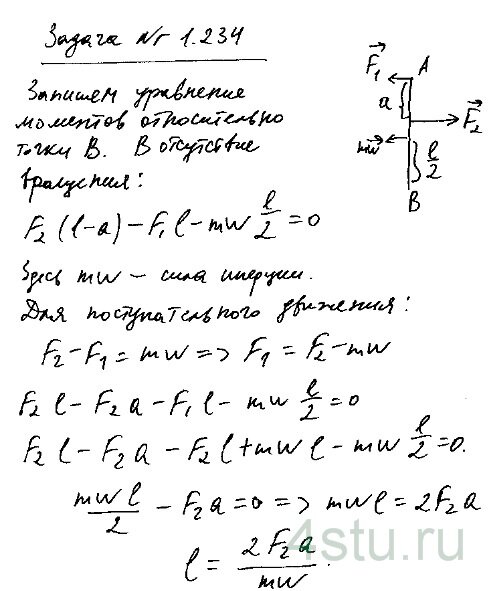 Задача № 1.234
Запишем уравнение
моментов относительно
точки B. В отсутствие
вращения:
F₂ (l-a) - F₁l - mw l/2 = 0
Здесь mw – сила инерции.
Для поступательного движения:
F₂ - F₁ = mw => F₁ = F₂ - mw
F₂ l - F₂ a - F₁ l - mw l/2 = 0
F₂ l - F₂ a - F₂ l + mw l - mw l/2 = 0.
mwl/2 - F₂ a = 0 => mwl = 2F₂ a
l = 2F₂ a/mw.
F₁ A
a
F₂
mw
l/2
B
4stu.ru